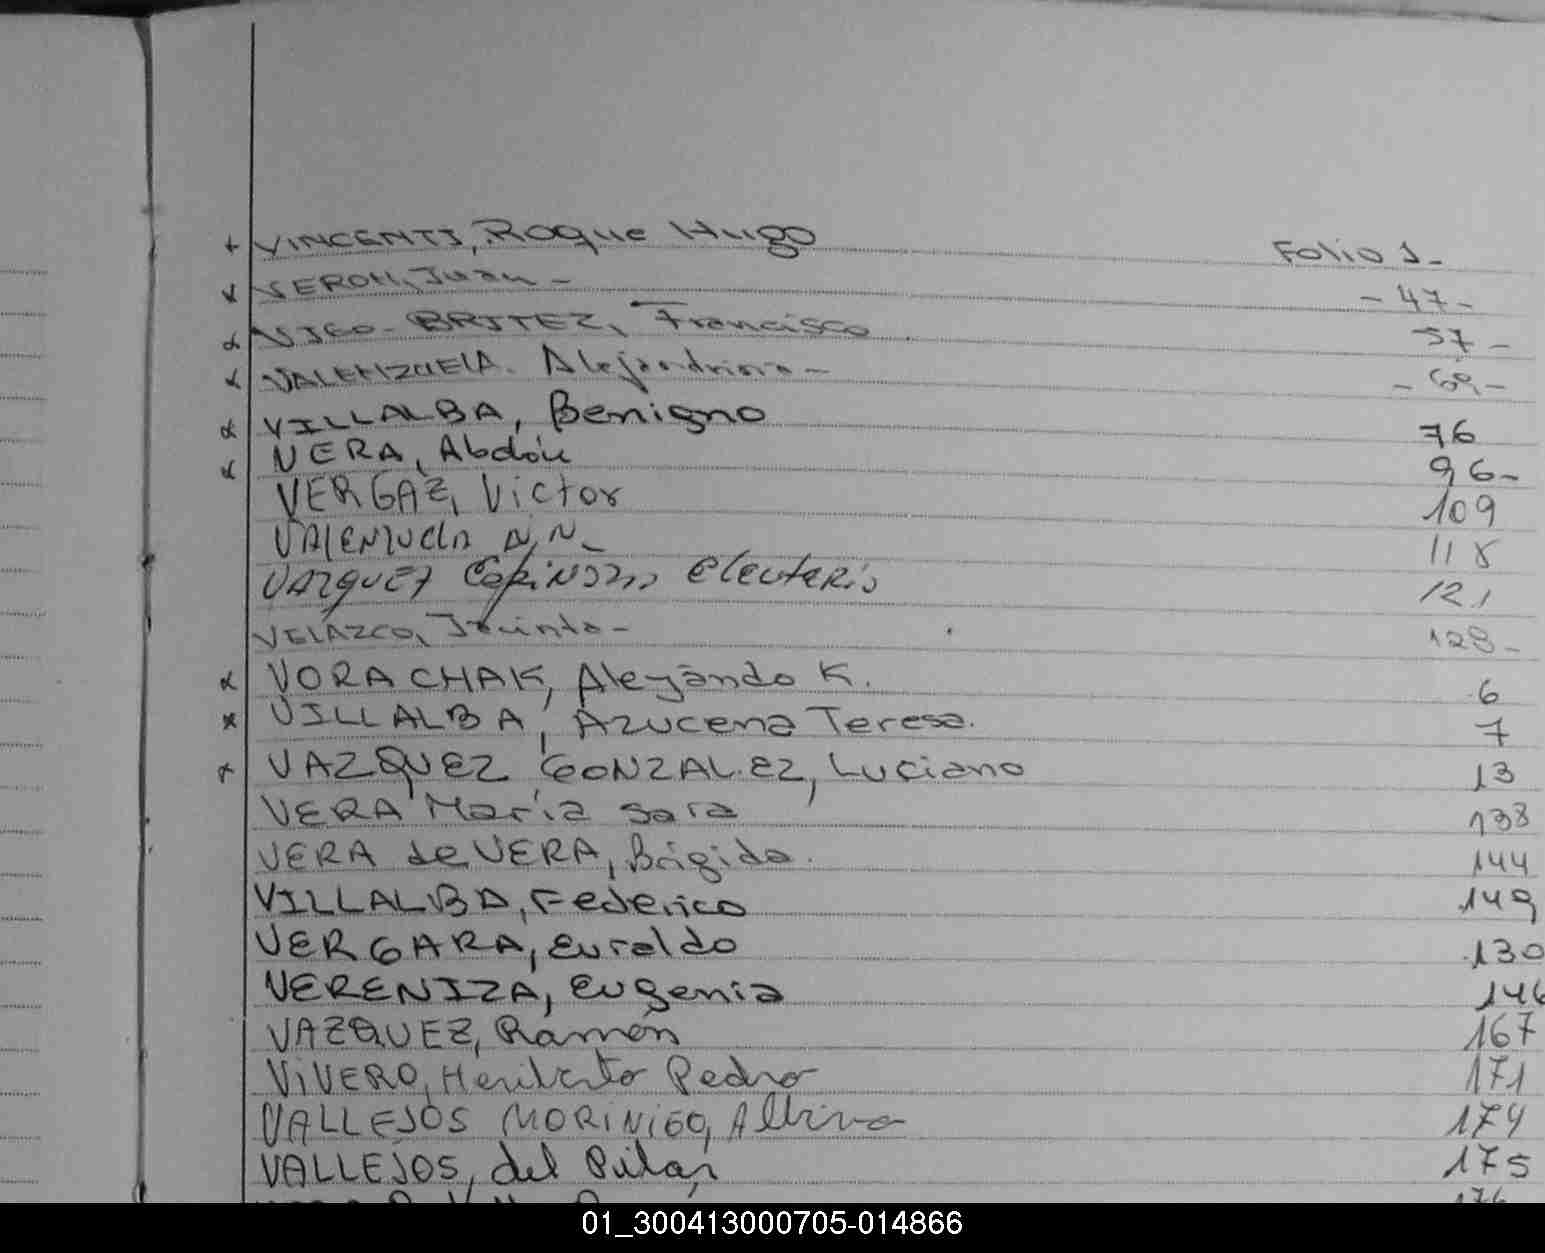 + VINCENTI, Roque Hugo Folio 1-
x VERON, Juan - - 47-
x VIGO- BRITEZ, Francisco 57 -
x VALENZUELA. Alejandrina - - 69 -
x VILLALBA, Benigno 76
x VERA, Abdón 96-
VERGAZ, Victor 109
VAlENZUElA N,N- 118
VAZQUEZ EspiNOZA, eleuteRio 121
VELAZCO, Jacinto - 128-
x VORACHAK, Aleyando K. 6
x VILLALBA, Azucena Teresa. 7
+ VAZQUEZ GONZALEZ, Luciano 13
VERA María Sara 138
VERA de VERA, Brigida. 144
VILLALBA, Federico 149
VERGARA, Euraldo 130
VERENIZA, Eugenia 146
VAZQUEZ, Ramón 167
ViVERO, Heriberto Pedro 171
VALLEJOS MORINIGO, Albina 174
VALLEJOS, del Pilar 175
176
01_300413000705-014866